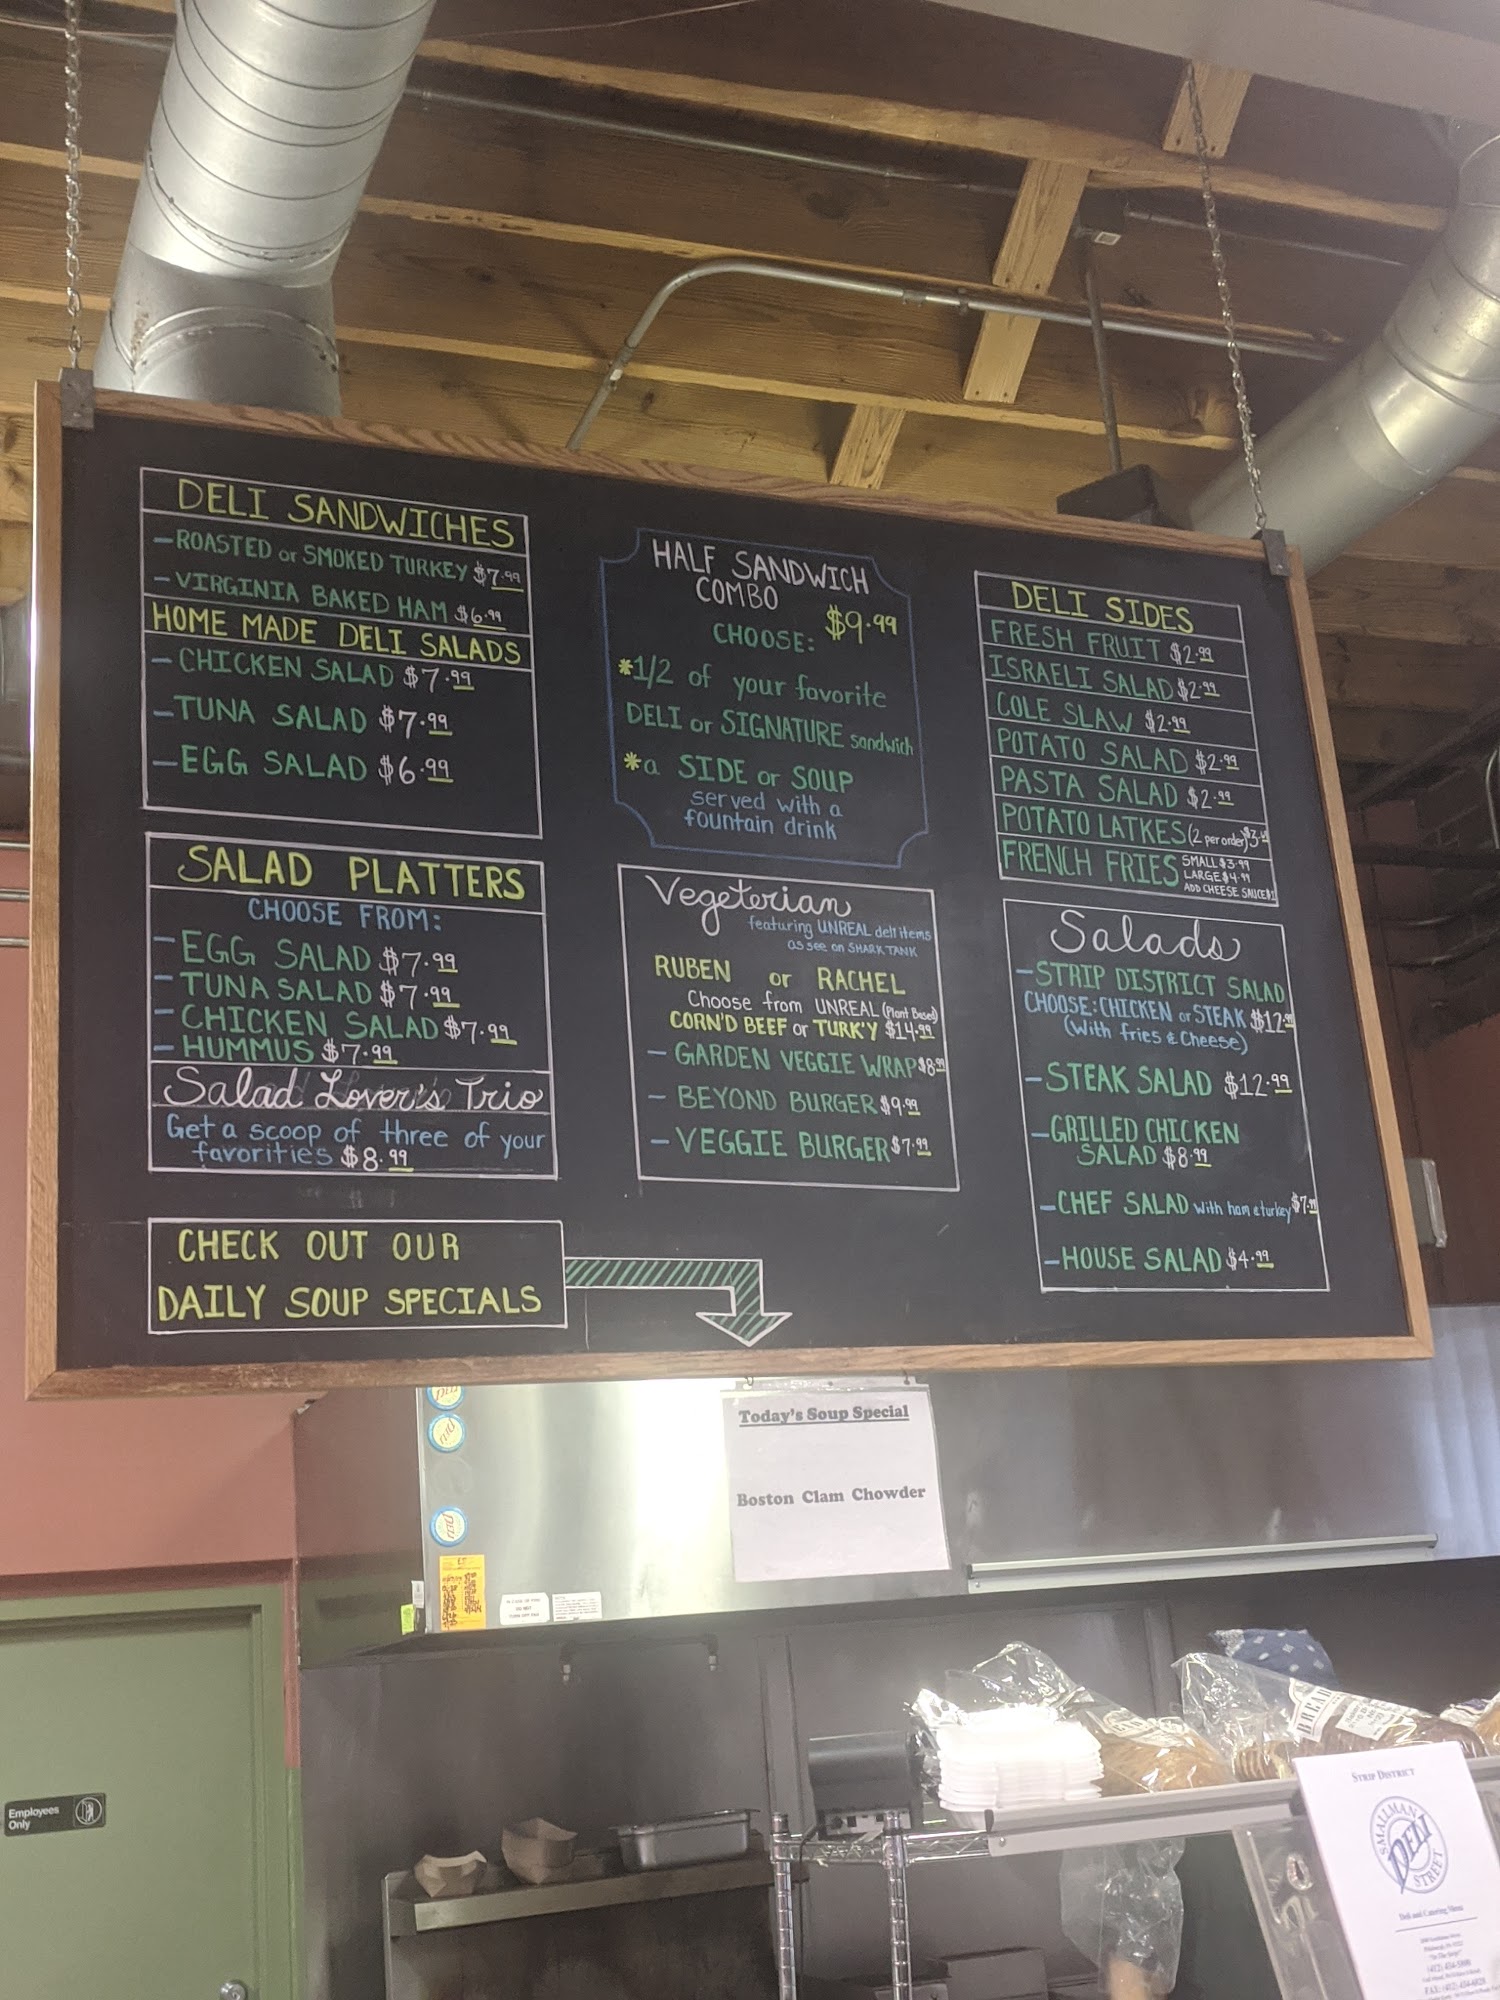 DELI SANDWICHES
-ROASTED or SMOKED TURKEY $7.99
-VIRGINIA BAKED HAM $6.99
HOME MADE DELI SALADS
-CHICKEN SALAD $7.99
-TUNA SALAD $7.99
-EGG SALAD $6.99
SALAD PLATTERS
CHOOSE FROM:
-EGG SALAD $7.99
-TUNA SALAD $7.99
-CHICKEN SALAD $7.99
-HUMMUS $7.99
Salad Lover's Trio
Get a scoop of three of your
favorities $8.99
CHECK OUT OUR
DAILY SOUP SPECIALS
HALF SANDWICH
COMBO $9.99
CHOOSE:
*1/2 of your favorite
DELI or SIGNATURE sandwich
*a SIDE or SOUP
served with a
fountain drink
Vegeterian
featuring UNREAL deli items
as see on SHARK TANK
RUBEN or RACHEL
Choose from UNREAL (Plant Based)
CORN'D BEEF or TURK'Y $14.99
- GARDEN VEGGIE WRAP $8.99
- BEYOND BURGER $9.99
- VEGGIE BURGER $7.99
DELI SIDES
FRESH FRUIT $2.99
ISRAELI SALAD $2.99
COLE SLAW $2.99
POTATO SALAD $2.99
PASTA SALAD $2.99
POTATO LATKES (2 per order)
FRENCH FRIES SMALL $3.99
LARGE $4.99
ADD CHEESE SAUCE $1
Salads
-STRIP DISTRICT SALAD
CHOOSE: CHICKEN or STEAK $12.99
(with fries & cheese)
-STEAK SALAD $12.99
-GRILLED CHICKEN
SALAD $8.99
-CHEF SALAD with ham & turkey $7.99
-HOUSE SALAD $4.99
Today's Soup Special
Boston Clam Chowder
DELI
Employees
Only
BREAD
STRIP DISTRICT
SMALLMAN
DELI
STREET
Deli and Catering Menu